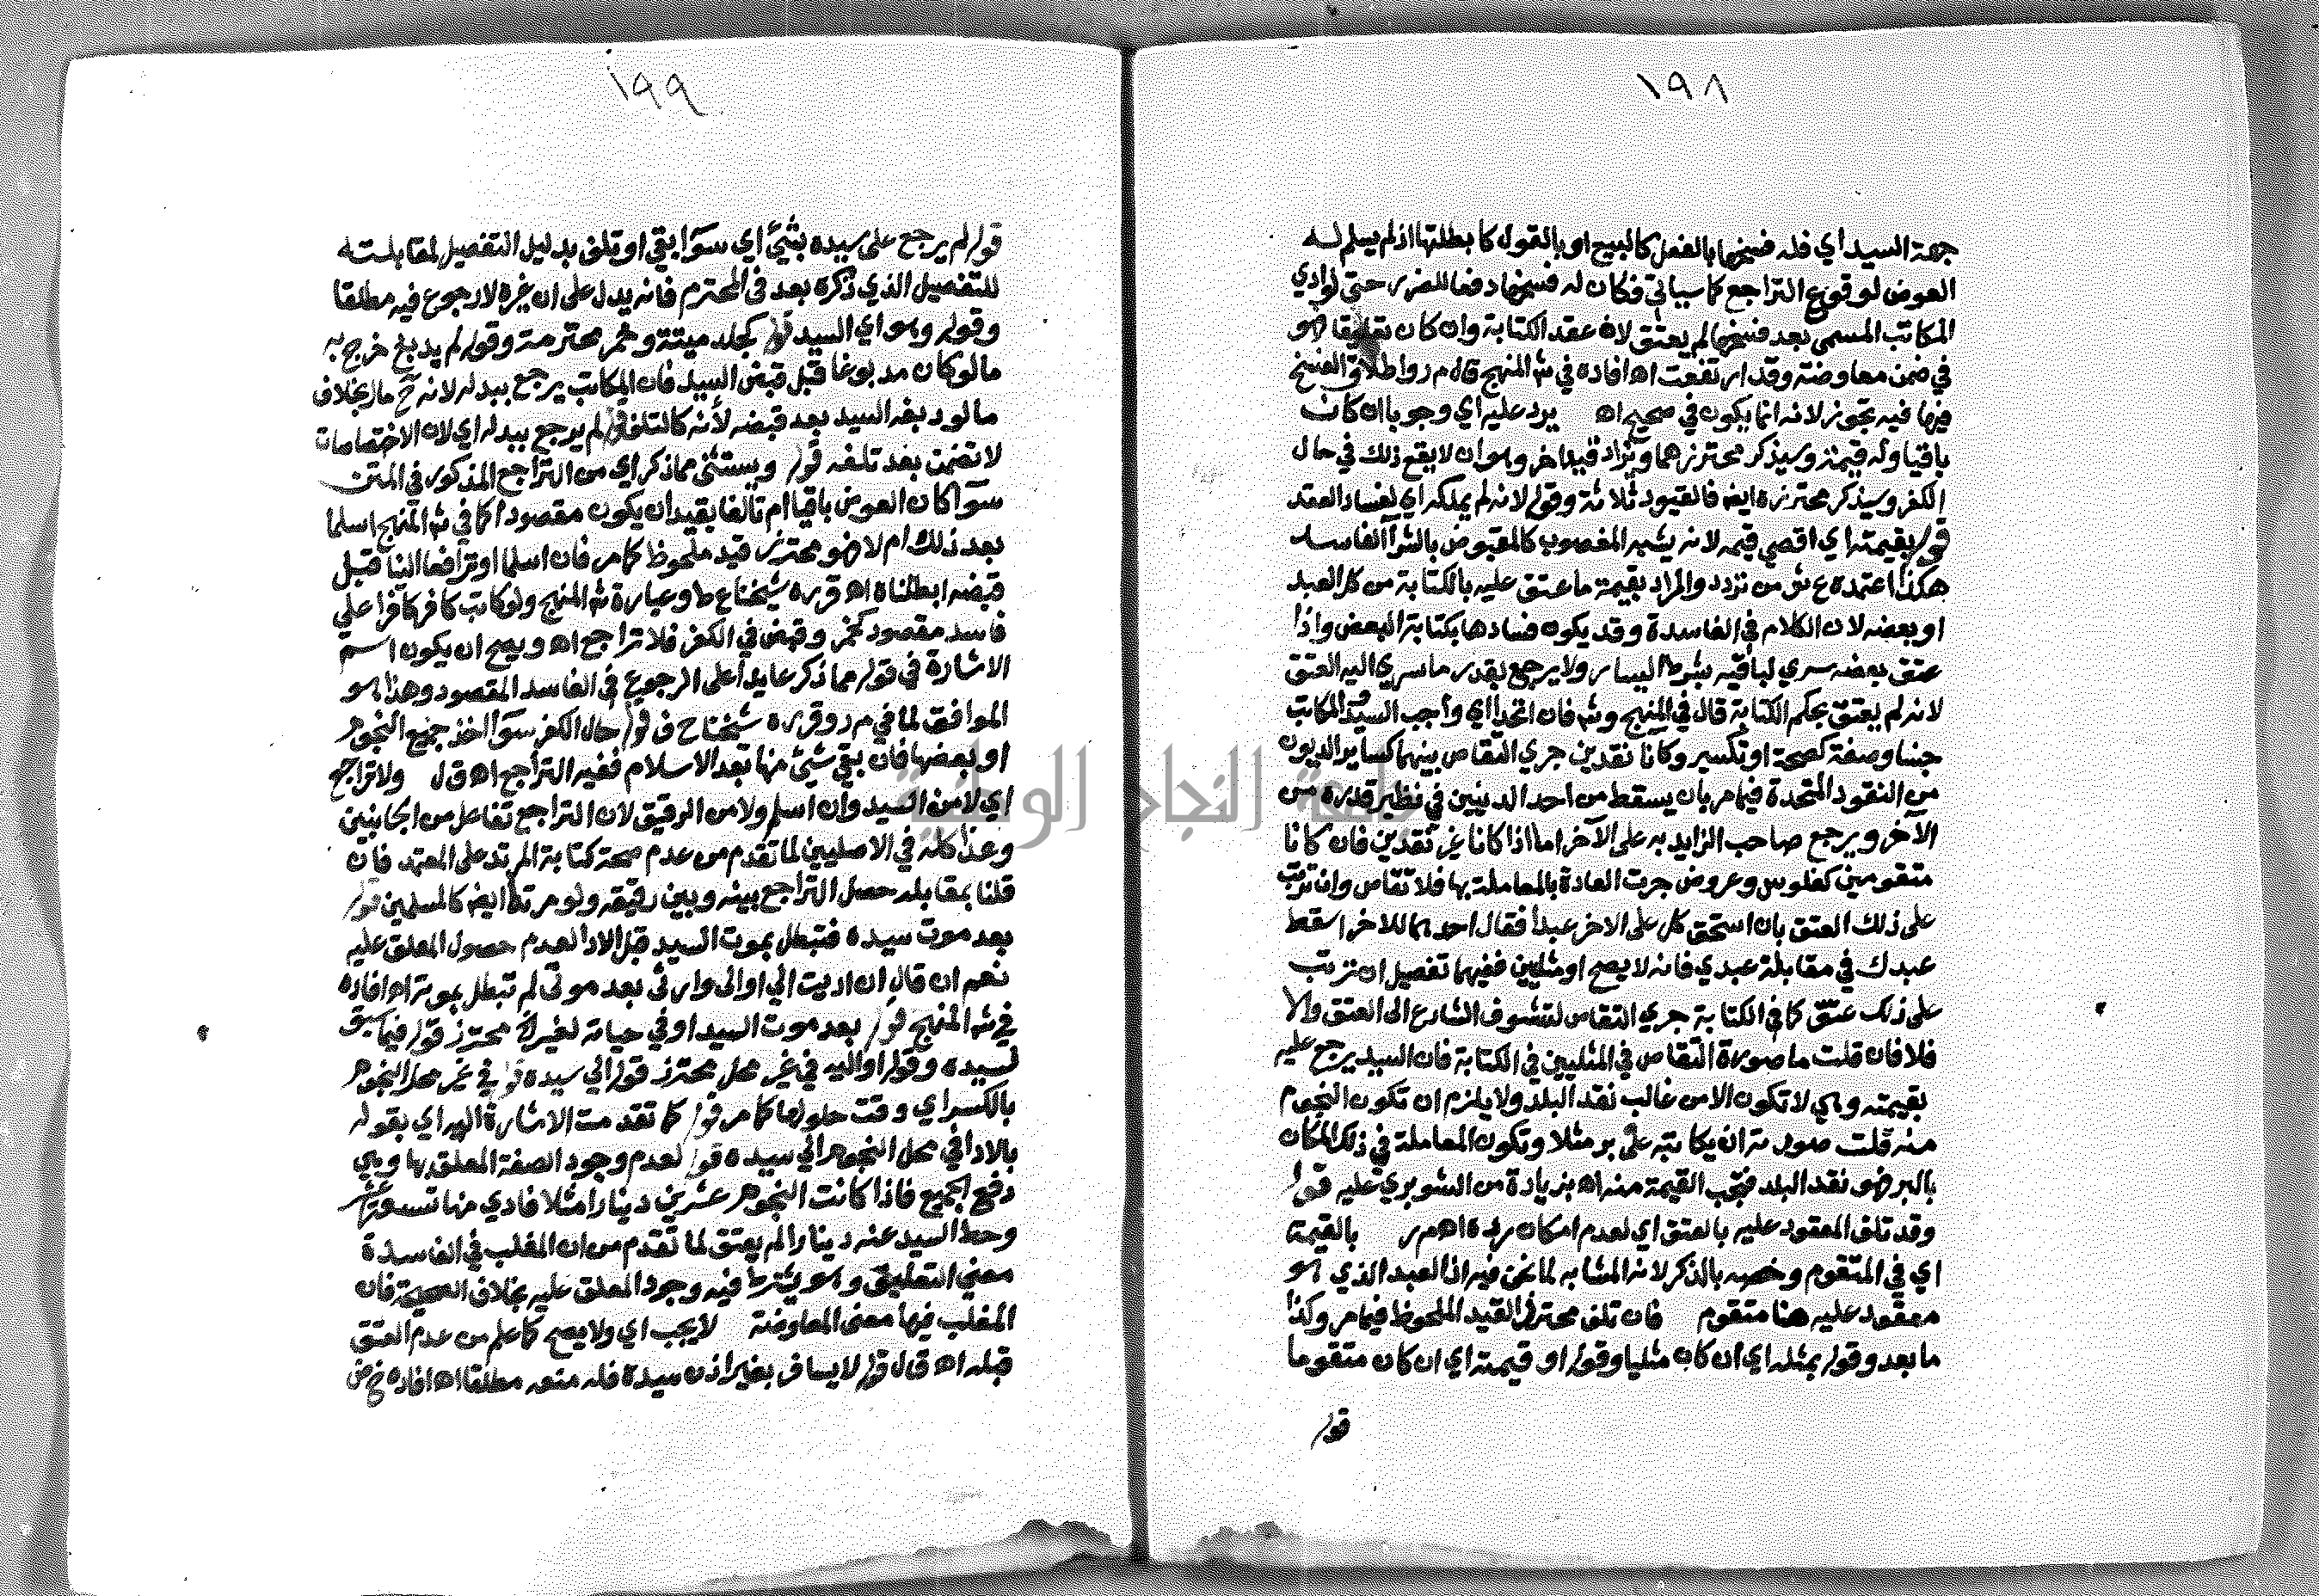 ١٩٨
جهة السيد اي فله فسخها بالفعل كالبيع او بالقول كابطلتها اذ لم يسلم له
العوض لوقوع التراجع كما سياتي فكان له فسخها دفعا للضرر حتى لو ادي
المكاتب المسمى بعد فسخها لم يعتق لان عقد الكتابة وان كان تعليقا فهو
في ضمن معاوضة وقد ارتفعت اه افاده في شم المنهج قال م ر واطلاق الفسخ
فيها فيه تجوز لانه انما يكون في صحيح اه يرد عليه اي وجوبا ان كان
باقيا وله قيمة وسيذكر محترزهما ويزاد قيد اخر وهو ان لا يقع ذلك في حال
الكفر وسيذكر محترزه ايض فالقيود ثلاثة وقوله لانه لم يملكه اي لفساد العقد
قوله بقيمته اي اقصي قيمه لانه يشبه المغصوب كالمقبوض بالشرآ الفاسد
هكذا اعتمده ع ش من تردد والمراد بقيمة ما عتق عليه بالكتابة من كل العبد
او بعضه لان الكلام في الفاسدة وقد يكون فسادها بكتابة البعض واذا
عتق بعضه سري لباقيه بشرط اليسار ولا يرجع بقدر ما سري اليه العتق
لانه لم يعتق بحكم الكتابة قال في المنهج وشم فان اتحدا اي واجب السيد والمكاتب
جنسا وصفة كصحة او تكسير وكانا نقدين جري التقاص بينهما كساير الديون
من النقود المتحدة فيما مر بان يسقط من احد الدينين في نظير قدره من
الآخر ويرجع صاحب الزايد به على الآخر اما اذا كانا غير نقدين فان كانا
متقومين كفلوس وعروض جرت العادة بالمعاملة بها فلا تقاص وان ترتب
على ذلك العتق بان استحق كل على الاخر عبدا فقال احدهما للاخر اسقط
عبدك في مقابلة عبدي فانه لا يصح او مثليين ففيهما تفصيل ان ترتب
على ذلك عتق كما في الكتابة جري التقاص لتشوف الشارع الى العتق والا
فلا فان قلت ما صورة التقاص في المثليين في الكتابة فان السيد يرجع عليه
بقيمته وهي لا تكون الا من غالب نقد البلد ولا يلزم ان تكون النجوم
منه قلت صورته ان يكاتبه على بر مثلا وتكون المعاملة في ذلك المكان
بالبر فهو نقد البلد فتجب القيمة منه اه بزيادة من الشوبري عليه قوله
وقد تلف المعقود عليه بالعتق اي لعدم امكان رده اه م ر بالقيمة
اي في المتقوم وخصه بالذكر لانه المشابه لما نحن فيه اذ العبد الذي هو
معقود عليه هنا متقوم فان تلف محترز القيد الملحوظ فيما مر وكذا
ما بعد وقوله بمثله اي ان كان مثليا وقوله او قيمته اي ان كان متقوما
قوله
١٩٩
قوله لم يرجع على سيده بشئ اي سوآ بقي او تلف بدليل التفصيل لمقابلته
للتفصيل الذي ذكره بعد في المحترم فانه يدل على ان غيره لا رجوع فيه مطلقا
وقوله وهو اي السيد قوله كجلد ميتة وخمر محترمة وقوله لم يدبغ خرج به
ما لو كان مدبوغا قبل قبض السيد فان المكاتب يرجع ببدله لانه ح مال بخلاف
ما لو دبغه السيد بعد قبضه لأنه كالتلف قوله لم يرجع ببدله اي لان الاختصاصات
لا تضمن بعد تلفه قوله ويستثنى مما ذكر اي من التراجع المذكور في المتن
سوآ كان العوض باقيا ام تالفا بقيد ان يكون مقصودا كما في شم المنهج اسلما
بعد ذلك ام لا فهو محترز قيد ملحوظ كما مر فان اسلما او ترافعا الينا قبل
قبضه ابطلناه اه قرره شيخنا ع ط وعبارة شم المنهج ولو كاتب كافر كافرا على
فاسد مقصود كخمر وقبض في الكفر فلا تراجع اه ويصح ان يكون اسم
الاشارة في قوله مما ذكر عايدا على الرجوع في الفاسد المقصود وهذا هو
الموافق لما في م ر وقرره شيخنا ح ف قوله حال الكفر سوآ اخذ جميع النجوم
او بعضها فان بقي شيئ منها بعد الاسلام ففيه التراجع اه ق ل ولا تراجع
اي لا من السيد وان اسلم ولا من الرقيق لان التراجع تفاعل من الجانبين
وهذا كله في الاصليين لما تقدم من عدم صحة كتابة المرتد على المعتمد فان
قلنا بمقابله حصل التراجع بينه وبين رقيقه ولو مرتدا ايض كالمسلمين قوله
بعد موت سيده فتبطل بموت السيد قبل الادا لعدم حصول المعلق عليه
نعم ان قال ان اديت الي او الى وارثى بعد موتي لم تبطل بموته اه افاده
في شم المنهج قوله بعد موت السيد او في حياته لغيره محترز قوله فيما سبق
لسيده وقوله او اليه في غير محل محترز قوله الي سيده قوله في غير محل النجوم
بالكسر اي وقت حلولها كما مر قوله كما تقدمت الاشارة اليه اي بقوله
بالادا في محل النجوم الي سيده قوله لعدم وجود الصفة المعلق بها وهي
دفع الجميع فاذا كانت النجوم عشرين دينارا مثلا فادي منها تسعة عشر
وحط السيد عنه دينارا لم يعتق لما تقدم من ان المغلب في الفاسدة
معني التعليق وهو يشترط فيه وجود المعلق عليه بخلاف الصحيحة فان
المغلب فيها معنى المعاوضة لا يجب اي ولا يصح كما علم من عدم العتق
قبله اه ق ل قوله لا يسافر بغير اذن سيده فله منعه مطلقا اه افاده خ ض